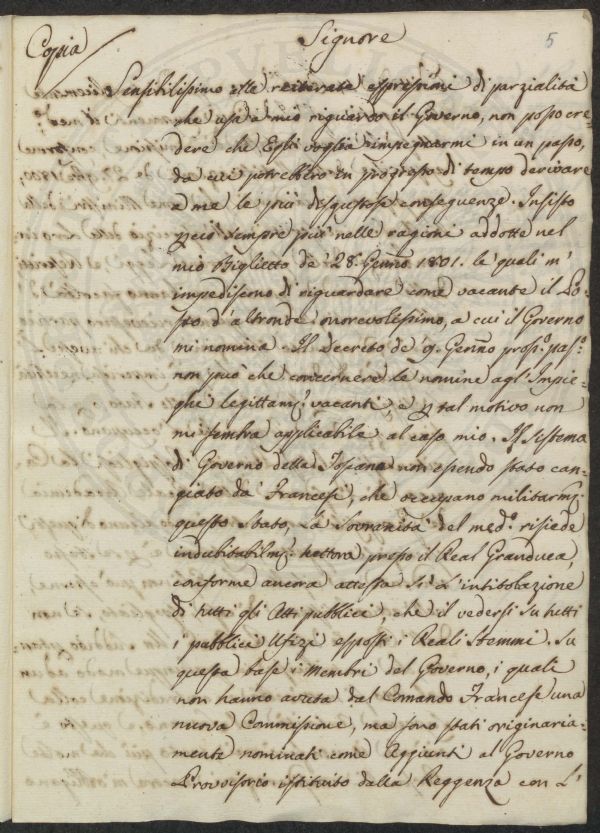 5
Copia
Signore
Sensibilissimo alle reiterate espressioni di parzialità
che usa a mio riguardo il Governo, non posso cre=
dere che Egli voglia impegnarmi in un passo,
da cui potrebbero in progresso di tempo derivare
a me le più disgustose conseguenze. Insisto
perciò sempre più nelle ragioni addotte nel
mio Biglietto de' 28. Genn.o 1801. le quali m'
impediscono di riguardare come vacante il Po=
sto d'altronde onorevolissimo, a cui il Governo
mi nomina. Il Decreto de' 9. Genn.o pross.o pas.o
non può che concernere le nomine agl'Impie=
ghi legittam.e vacanti, e p tal motivo non
mi sembra applicabile al caso mio. Il sistema
di Governo della Toscana non essendo stato can=
giato da' Francesi, che occupano militarm.e
questo Stato, la Sovranità del med.o risiede
indubitabilm.e tuttora presso il Real Granduca,
conforme ancora attesta sì l'intitolazione
di tutti gli Atti pubblici, che il vedersi su tutti
i pubblici Ufizi esposti i Reali Stemmi. Su
questa base i Membri del Governo, i quali
non hanno avuta dal Comando Francese una
nuova Commissione, ma sono stati originaria=
mente nominati come Aggiunti al Governo
Provvisorio istituito dalla Reggenza con l'